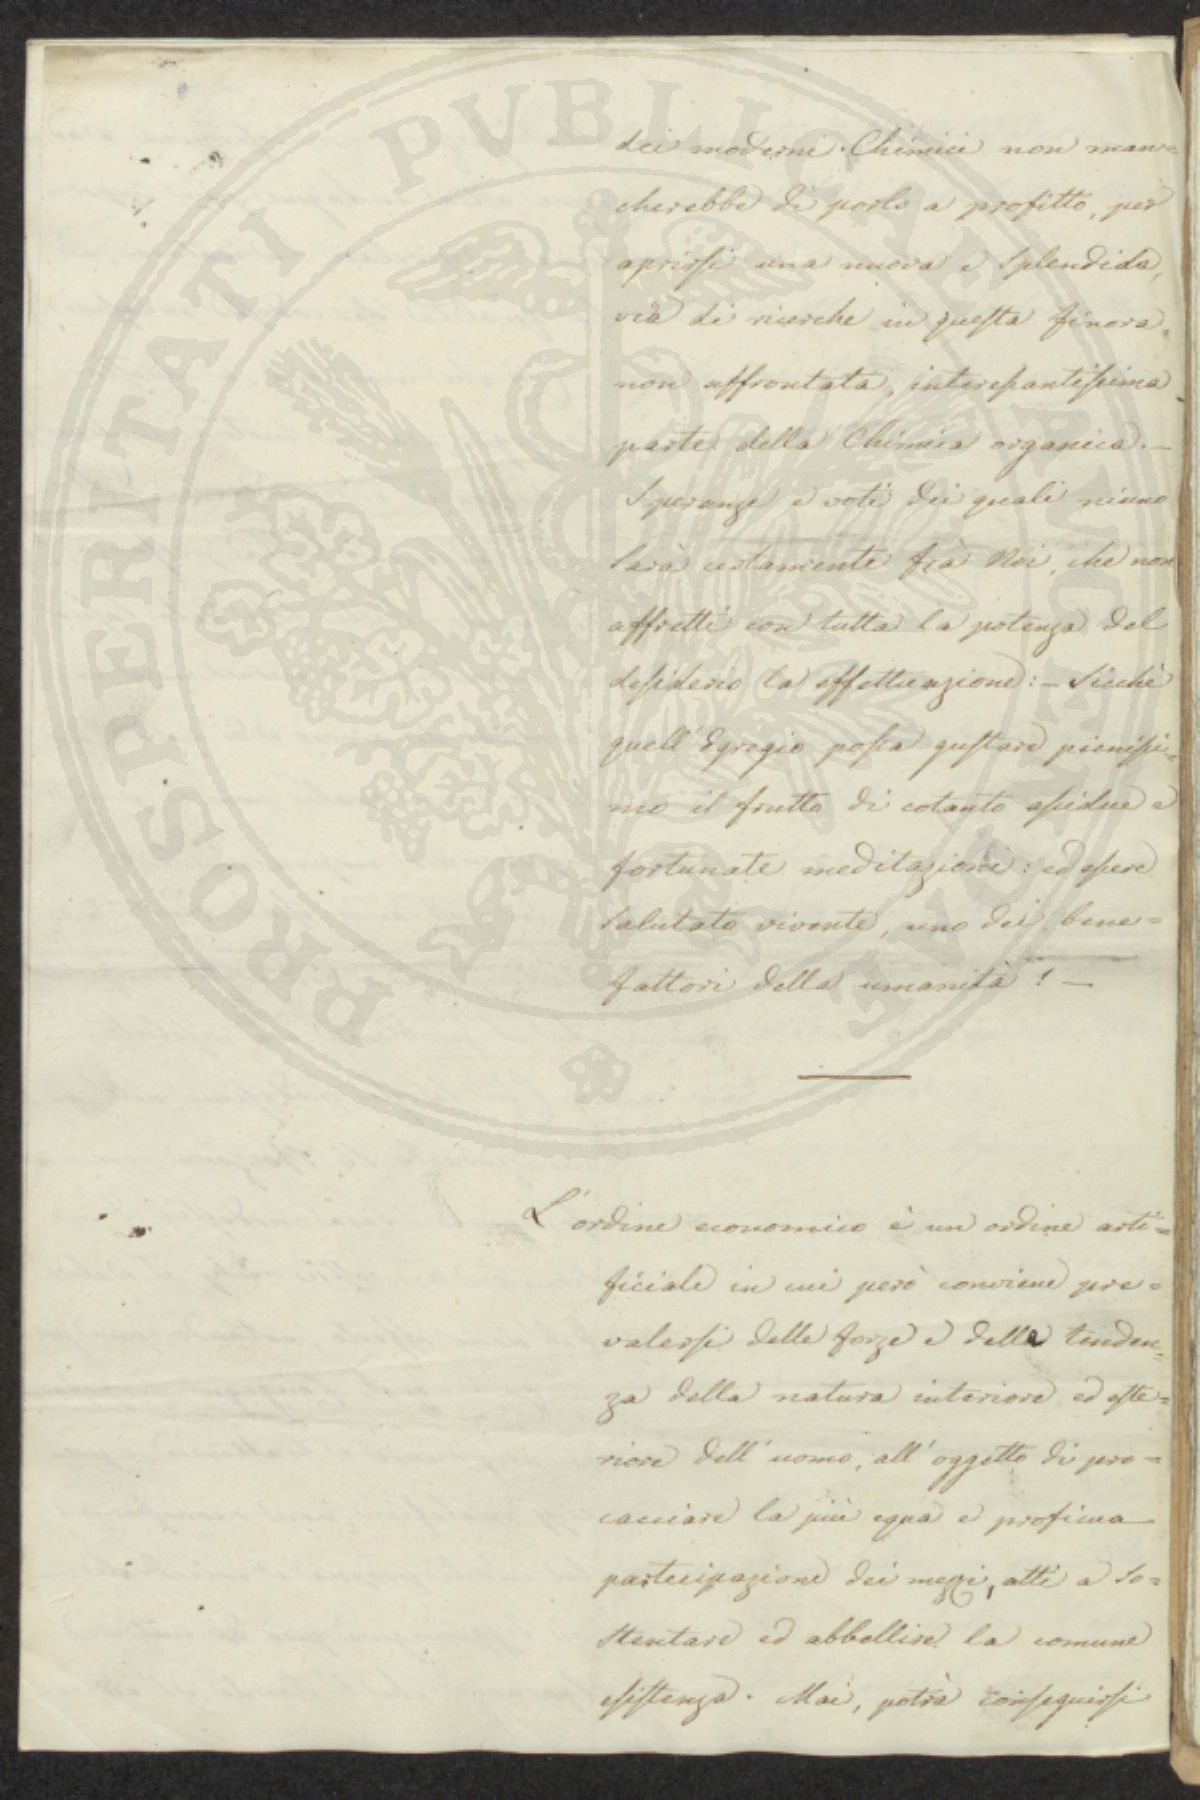 PROSPERITATI PUBLICAE AUGENDAE
dei moderni Chimici non man=
cherebbe di porlo a profitto, per
aprirsi una nuova e splendida,
via di ricerche in questa finora,
non affrontata, interessantissima
parte della Chimica organica. —
Speranze e voti dei quali niuno
sarà certamente frà Noi, che non
affretti con tutta la potenza del
desiderio la effettuazione: — Sicchè
quell' Egregio possa gustare pienissi=
mo il frutto di cotanto assidue e
fortunate meditazioni: ed essere
salutato vivente, uno dei bene=
fattori della umanità! —
L'ordine economico è un ordine arti=
ficiale in cui però conviene pre=
valersi delle forze e delle tenden=
za della natura interiore ed este=
riore dell' uomo, all' oggetto di pro=
cacciare la più equa e proficua
partecipazione dei mezzi, atti a so=
stentare ed abbellire la comune
esistenza. Mai, potrà conseguirsi